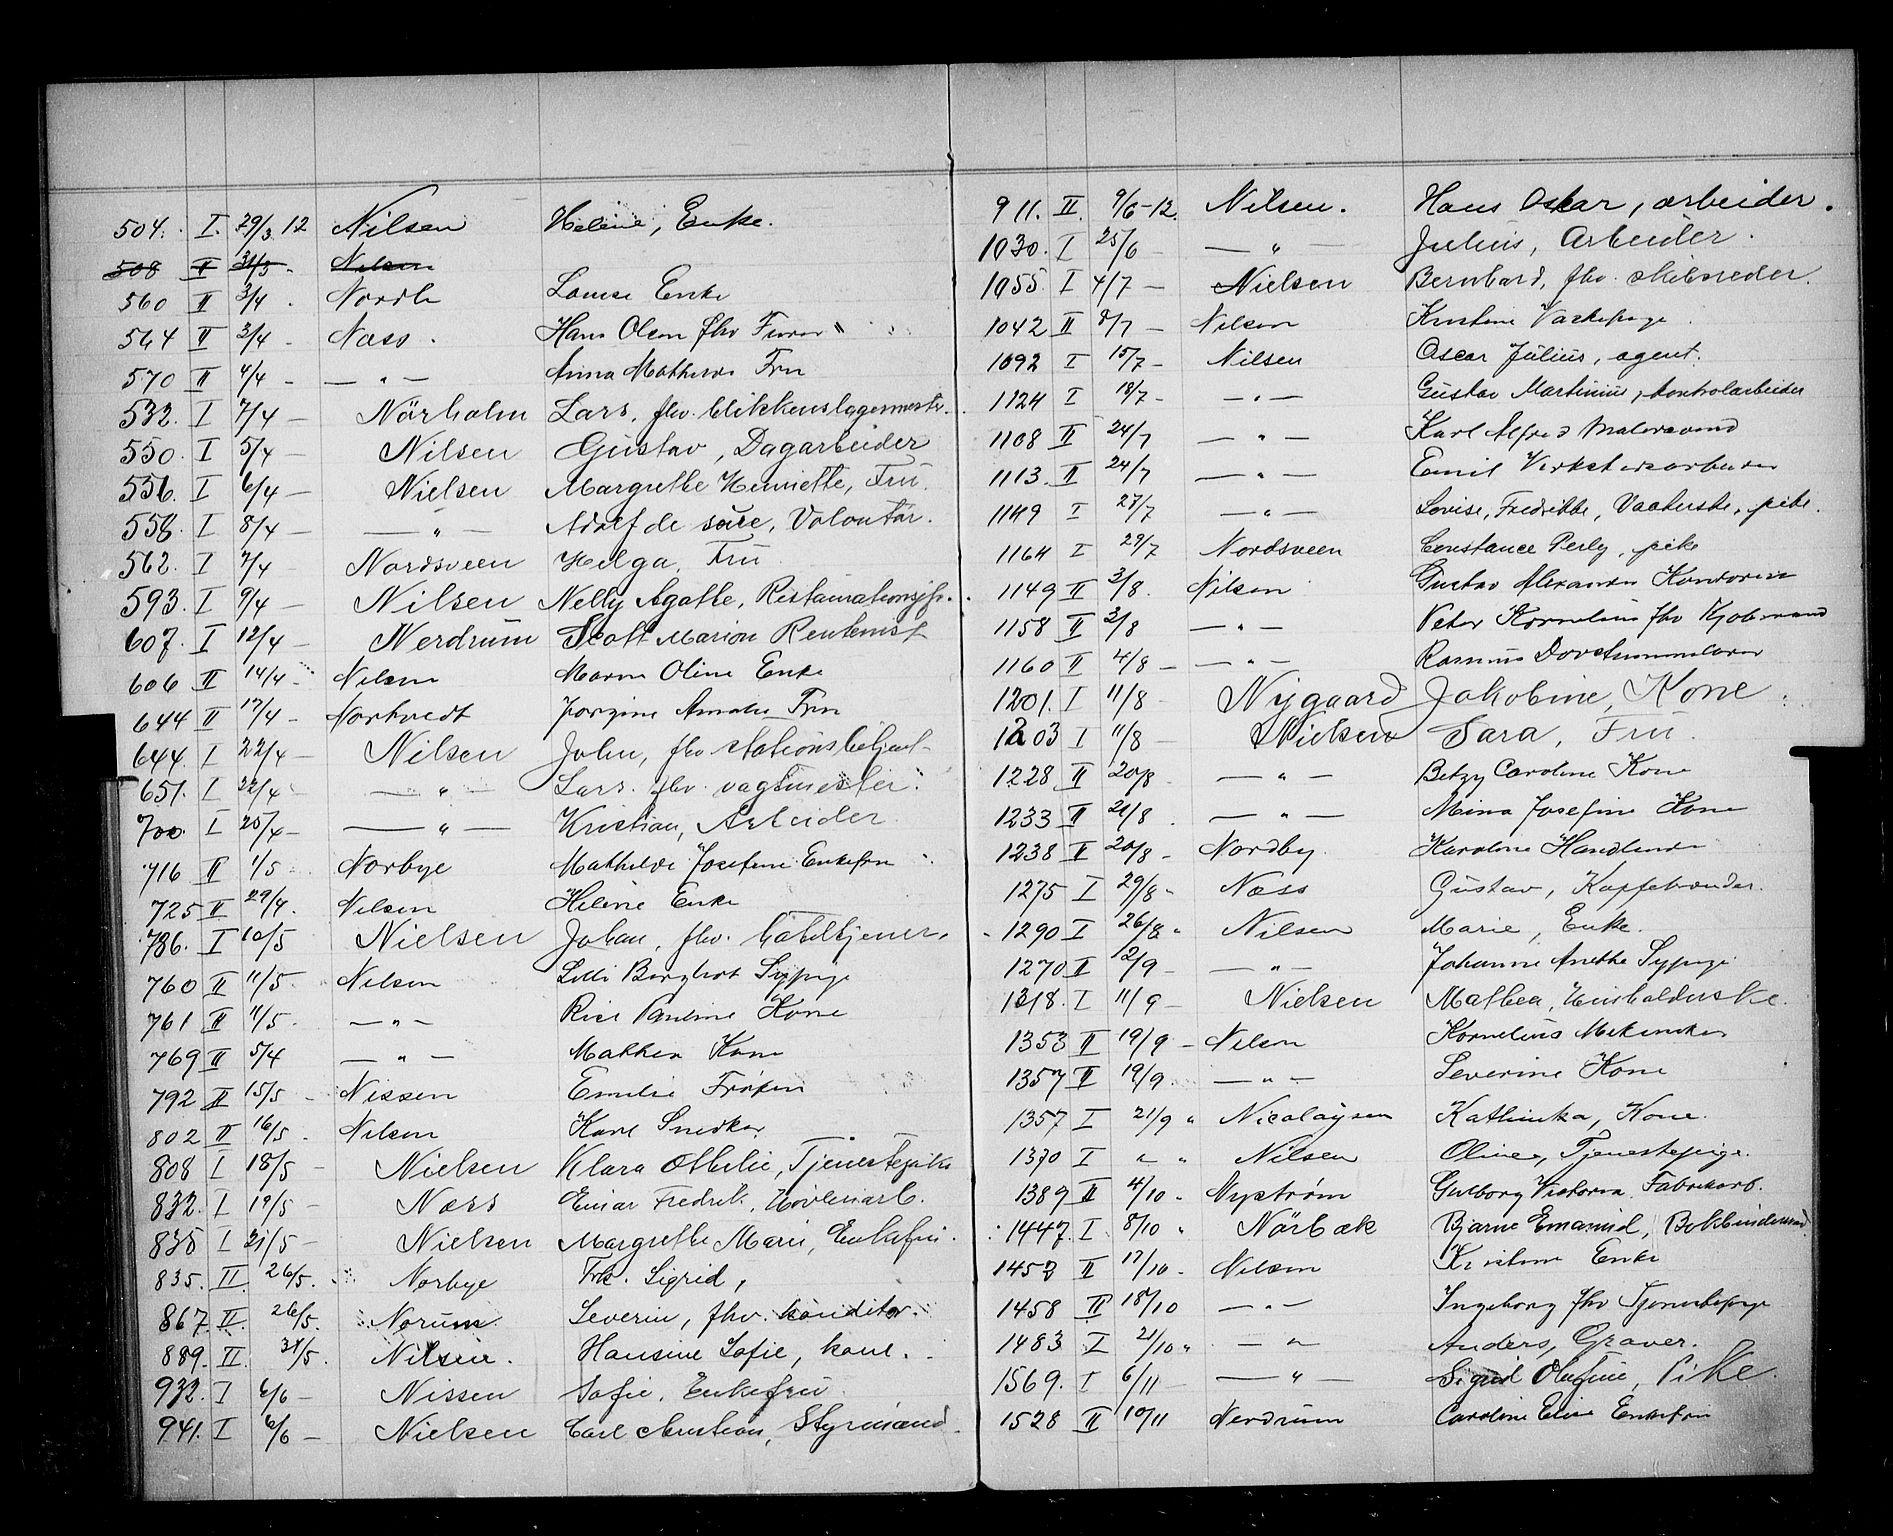 504. I. 29/3 12 Nilsen Helene, Enke.
508 II 31/3 - Nilsen
560 II 3/4 . Nordli Louise Enke
564 II 3/4 - Næss . Hans Olsen fhv
570 II 4/4 - — " — Anna Mathilde Fru
532. I 7/4 — Nörholm Lars, fhv. blikkenslagermester.
550. I 5/4 — Nilsen Gustav, Dagarbeider
556. I 6/4 — Nielsen Margrethe Henriette, Fru.
558. I 8/4 — — " — Adolf de Volontär.
562. I 7/4 — Nordsveen Helga, Fru
593. I 9/4 — Nilsen Nelly Agathe,
607. I 12/4 — Nerdrum Scott Marion Rentenist
606 II 14/4 - Nilsen Maren Oline Enke
644 II 17/4 - Nortvedt Jorgine Amalie Fru
644. I 22/4 — Nilsen John, fhv. stationsbetjent
651. I 22/4 — " — Lars. fhv. vagtmester.
700. I 25/4 — — " — Kristian, Arbeider
716 II 1/5 Norbye Mathilde Josefine Enkefru
725 II 29/4. Nilsen Heline Enke
786. I 10/5 Nielsen Johan, fhv.
760 II 11/5. Nilsen Lilli Borghild Sypige
761 II 11/5. — " — Pauline Kone
769 II 5/4 — " — Mathea Kone
792 II 15/5 - Nissen Emilie Frøken
802 II 16/5 . Nilsen Karl Snedker
808 I 18/5 — Nielsen Klara Othilie, Tjenestepike
832. I 19/5 — Næss Einar Fredrik,
838 I 21/5 — Nielsen Margrethe Marie, Enkefru.
835. II. 26/5. Norbye Frk. Sigrid,
867. II. 26/5. Norum. Severin, fhv. konditor.
889. II. 31/5. Nilsen. Hansine Sofie, kone.
932. I 6/6 — Nissen Sofie, Enkefru
941. I 6/6 — Nielsen Carl Christian, Styrmand.
911. II. 9/6-12. Nilsen. Hans Oskar, arbeider.
1030. I 25/6 — — " — Julius, Arbeider.
1055. I 4/7 — Nielsen Bernhard, fhv. skibsreder.
1042 II 8/7 — Nilsen Kristine Vaskepige
1092 I 15/7 — Nilsen Oscar Julius, agent.
1124 I 18/7 — — " — Gustav Martinius, kontrolarbeider
1108 II 24/7 — " — Karl Alfred Malersvend
1113. II 24/7 — " — Emil Verkstedsarbeider
1149 I 27/7 — " — Lovise, Fredrikke, pike.
1164 I 29/7 Nordsveen Constance Perly, pike
1149 II 3/8. Nilsen Gustav Alexander
1158 II 3/8 — " — Peter Kornelius fhv Kjøbmand
1160 II 4/8 — — " — Rasmus
1201. I 11/8 Nygaard Jakobine, Kone.
1203 I 11/8 — Nielsen Sara, Fru.
1228 II 20/8 — " — Betzy Caroline Kone
1233 II 21/8 . — " — Mina Josefine Kone
1238 II 20/8 - Nordby Karoline Handlende
1275 I 29/8 " Næss Gustav,
1290 I 26/8 " Nilsen Marie, Enke.
1270 II 12/9 — — " — Johanne Anethe Sypige
1318. I 11/9 — Nielsen Mathea, Husholderske.
1353 II 19/9 — Nilsen Kornelius Mekaniker
1357 II 19/9 — " — Severine Kone
1357 I 21/9 " Nicolaysen Kathinka, Kone.
1370 I " " Nilsen Oline, Tjenestepige.
1389 II 4/10 - Nystrøm Gulborg Victoria Fabrikarb.
1447. I 8/10 " Nörbæk Bjarne Emanuel, Bokbindersvend.
1452 II 17/10 - Nilsen Kristine Enke
1458 II 18/10 — " — Ingeborg fhv Tjenestepige
1483 I 21/10 " — " Anders, Graver.
1569. I 6/11 — " — Sigrid Olufine, Pike.
1528 II 10/11 Nerdrum Caroline Elise Enkefru